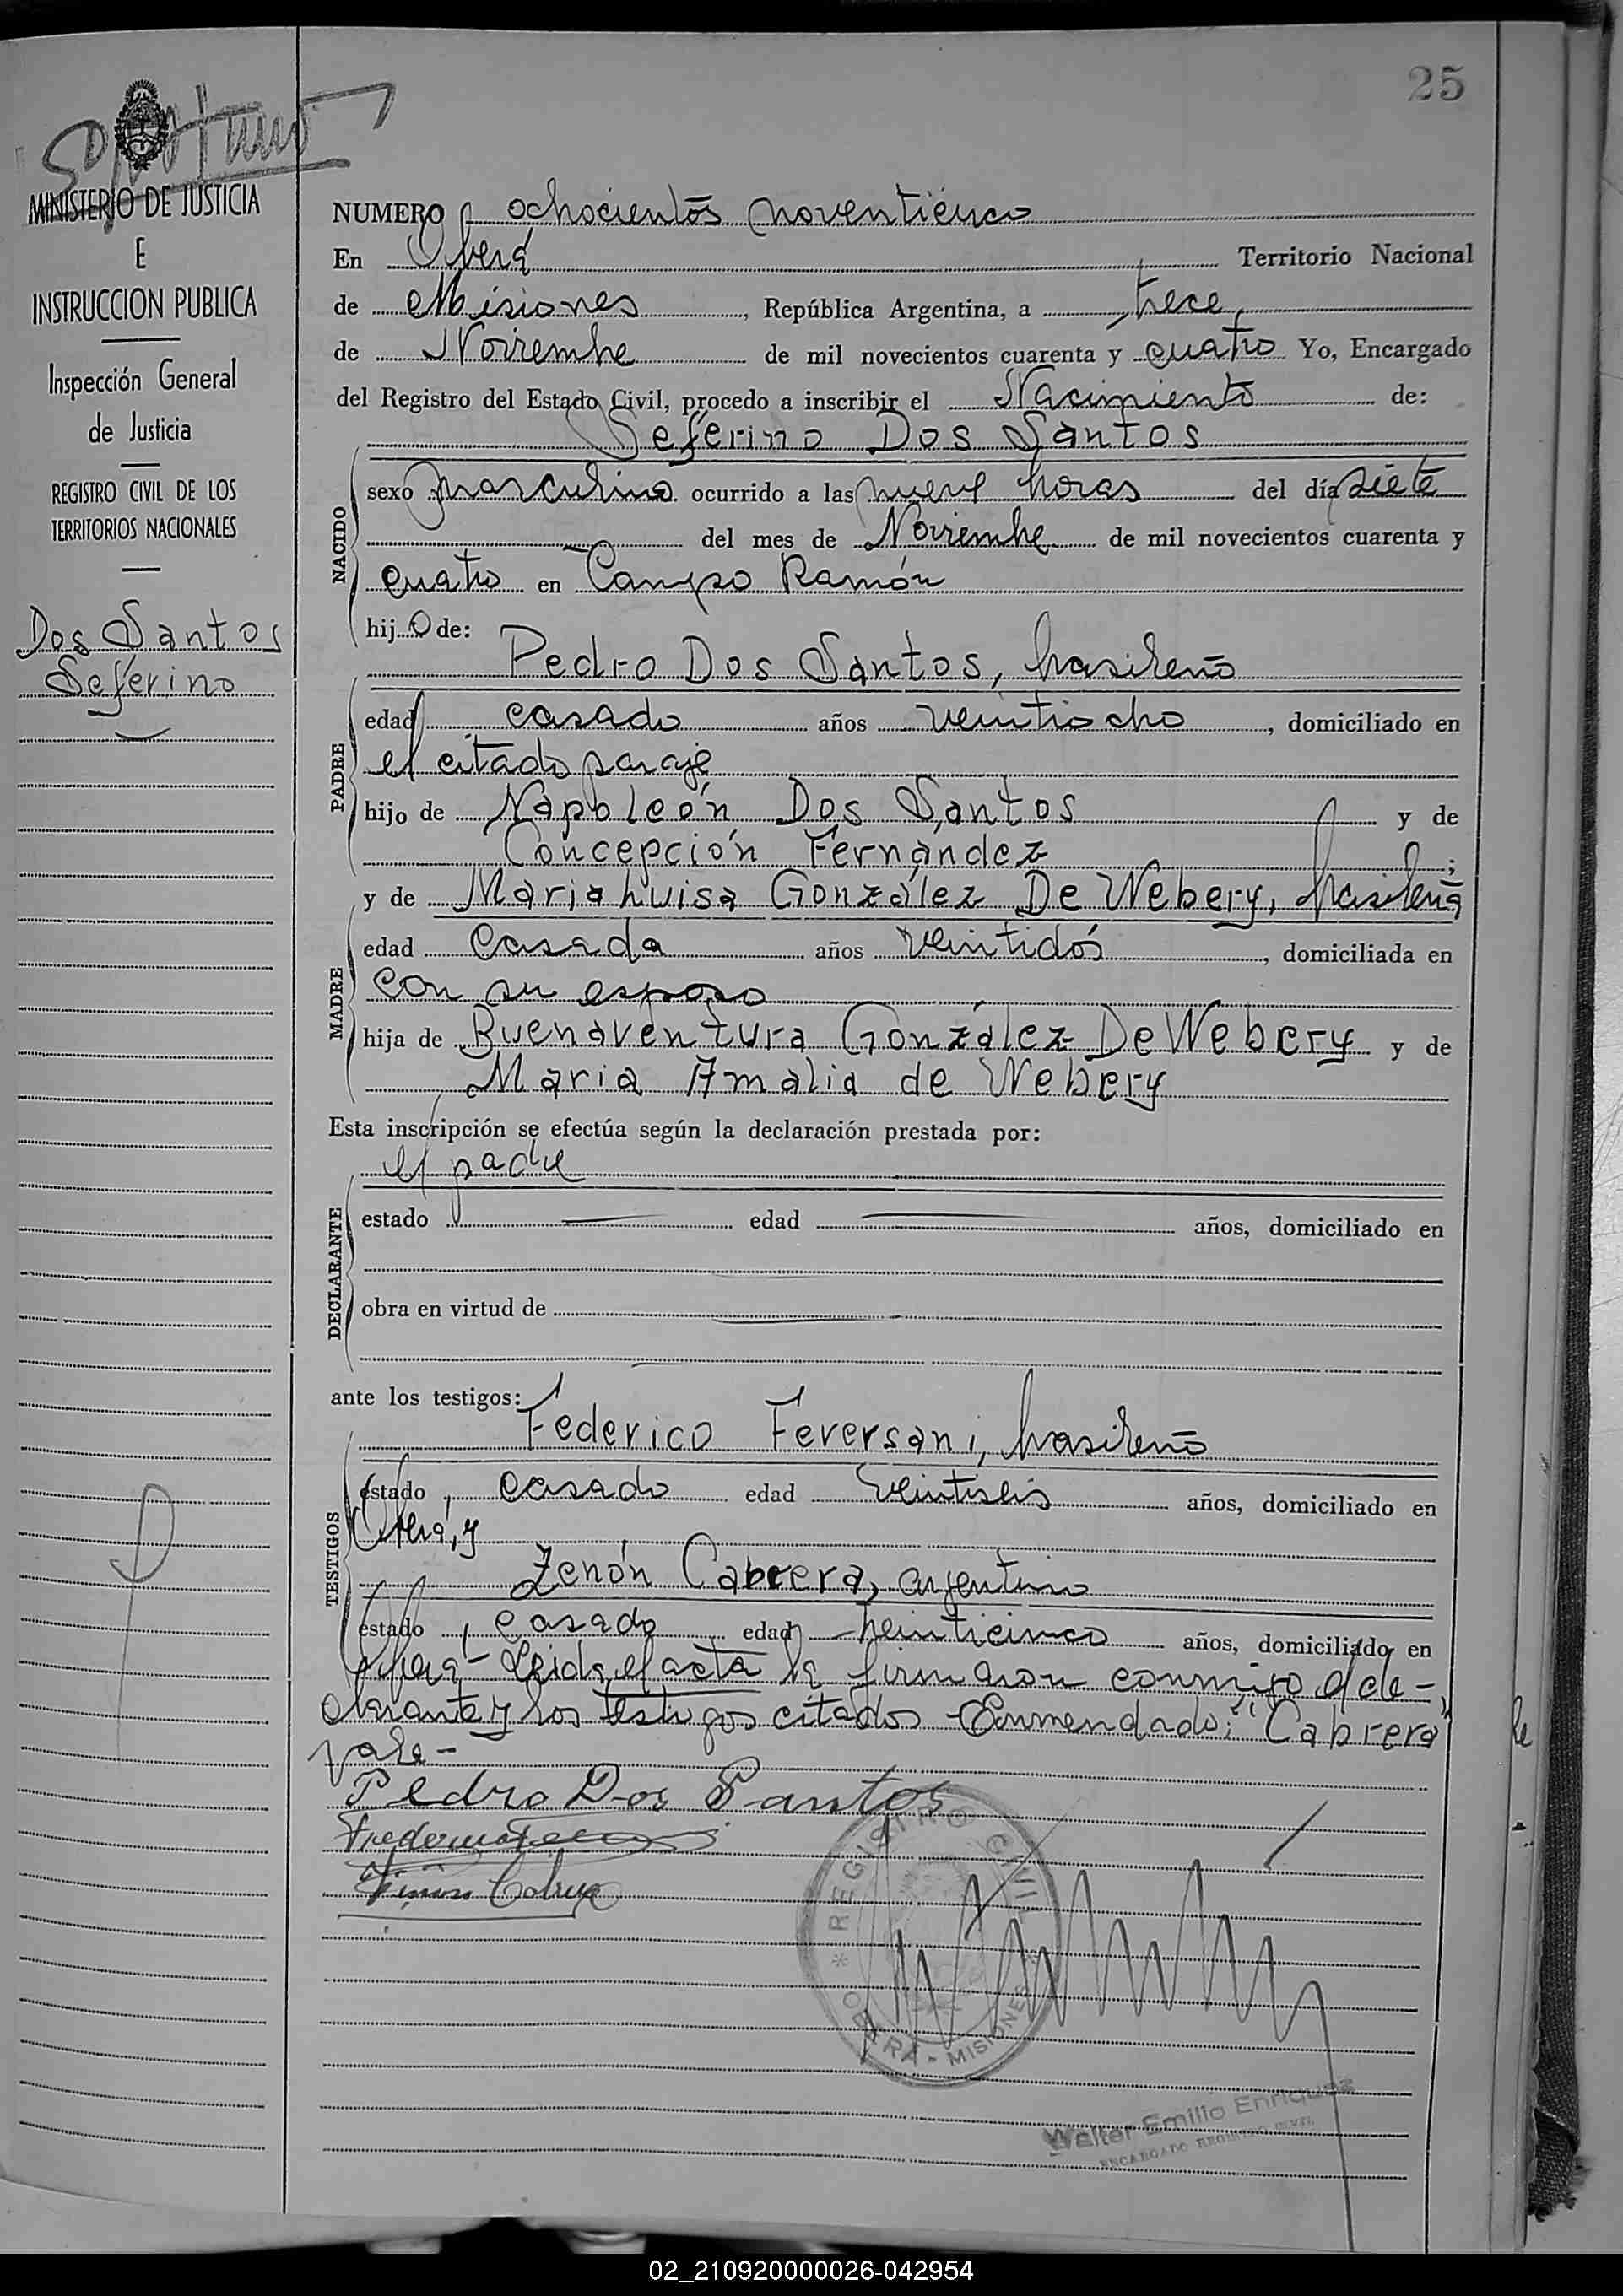 25
MINISTERIO DE JUSTICIA
E
INSTRUCCION PUBLICA
Inspección General
de Justicia
REGISTRO CIVIL DE LOS
TERRITORIOS NACIONALES
Dos Santos
Seferino
NUMERO ochocientos noventicinco
En Oberá Territorio Nacional
de Misiones, República Argentina, a trece
de Noviembre de mil novecientos cuarenta y cuatro Yo, Encargado
del Registro del Estado Civil, procedo a inscribir el Nacimiento de:
Seferino Dos Santos
NACIDO
sexo masculino ocurrido a las nueve horas del día siete
del mes de Noviembre de mil novecientos cuarenta y
cuatro en Campo Ramón
hijo de:
Pedro Dos Santos, brasileño
PADRE
edad casado años veintiocho, domiciliado en
el citado paraje
hijo de Napoleón Dos Santos y de
Concepción Fernández;
y de Maria Luisa González De Webery, brasileña
MADRE
edad casada años veintidós, domiciliada en
con su esposo
hija de Buenaventura González De Webery y de
Maria Amalia de Webery
Esta inscripción se efectúa según la declaración prestada por:
el padre
DECLARANTE
estado edad años, domiciliado en
obra en virtud de
ante los testigos:
Federico Feversani, brasileño
TESTIGOS
estado casado edad veintiseis años, domiciliado en
Oberá, y
Zenón Cabrera, argentino
estado casado edad veinticinco años, domiciliado en
Oberá - Leida el acta la firmaron conmigo el de-
clarante y los testigos citados - Enmendado: "Cabrera"
vale -
Pedro Dos Santos
REGISTRO CIVIL
OBERA - MISIONES
Walter Emilio Enriquez
ENCARGADO REGISTRO CIVIL
02_210920000026-042954